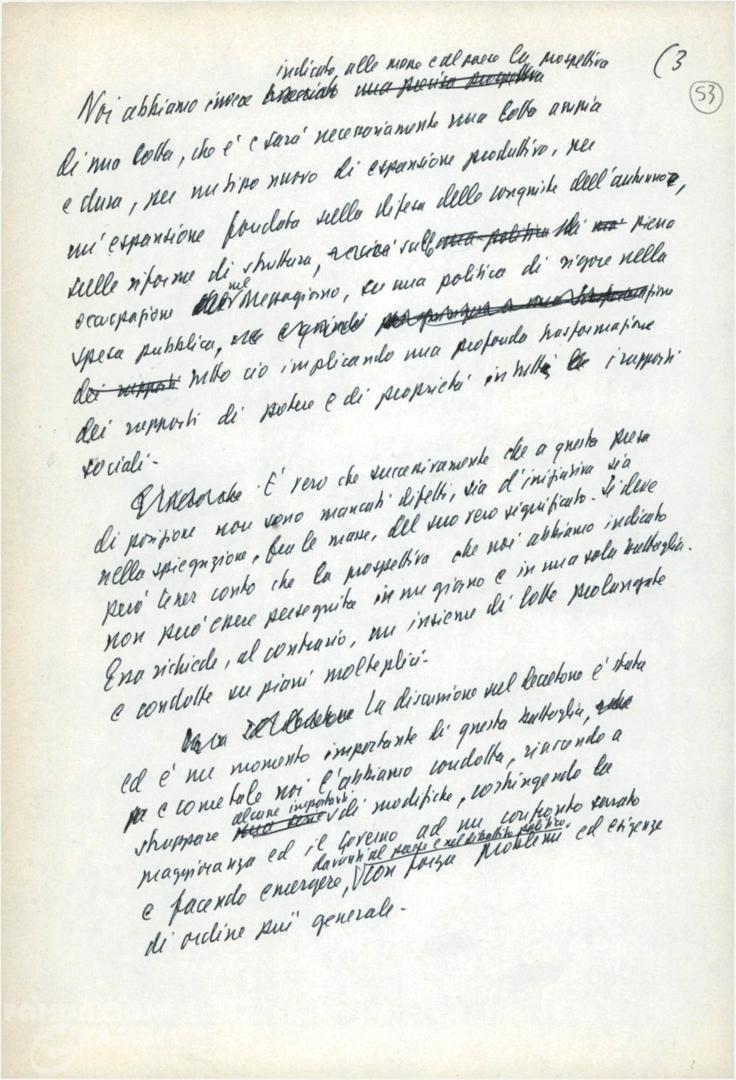 (3
53
indicato alle masse e al paese la prospettiva
Noi abbiamo invece una precisa prospettiva
di una lotta, che è e sarà necessariamente una lotta ampia
e dura, per un tipo nuovo di espansione produttiva, per
un'espansione fondata sulla difesa delle conquiste dell'autunno,
sulle riforme di struttura, sulla una politica di piena
occupazione nel Mezzogiorno, su una politica di rigore nella
spesa pubblica, e quindi
dei rapporti tutto ciò implicando una profonda trasformazione
dei rapporti di potere e di proprietà in tutti i rapporti
sociali.
È vero che successivamente che a questa presa
di posizione non sono mancati difetti, sia d'iniziativa sia
nella spiegazione, fra le masse, del suo vero significato. Si deve
però tener conto che la prospettiva che noi abbiamo indicato
non può essere perseguita in un giorno e in una sola battaglia.
Essa richiede, al contrario, un insieme di lotte prolungate
e condotte su piani molteplici.
La discussione sul decretone è stata
ed è un momento importante di questa battaglia,
e come tale noi l'abbiamo condotta, riuscendo a
alcune importanti
strappare una serie di modifiche, costringendo la
maggioranza ed il governo ad un confronto serrato
davanti al paese e nel dibattito politico
e facendo emergere, con forza problemi ed esigenze
di ordine più generale.